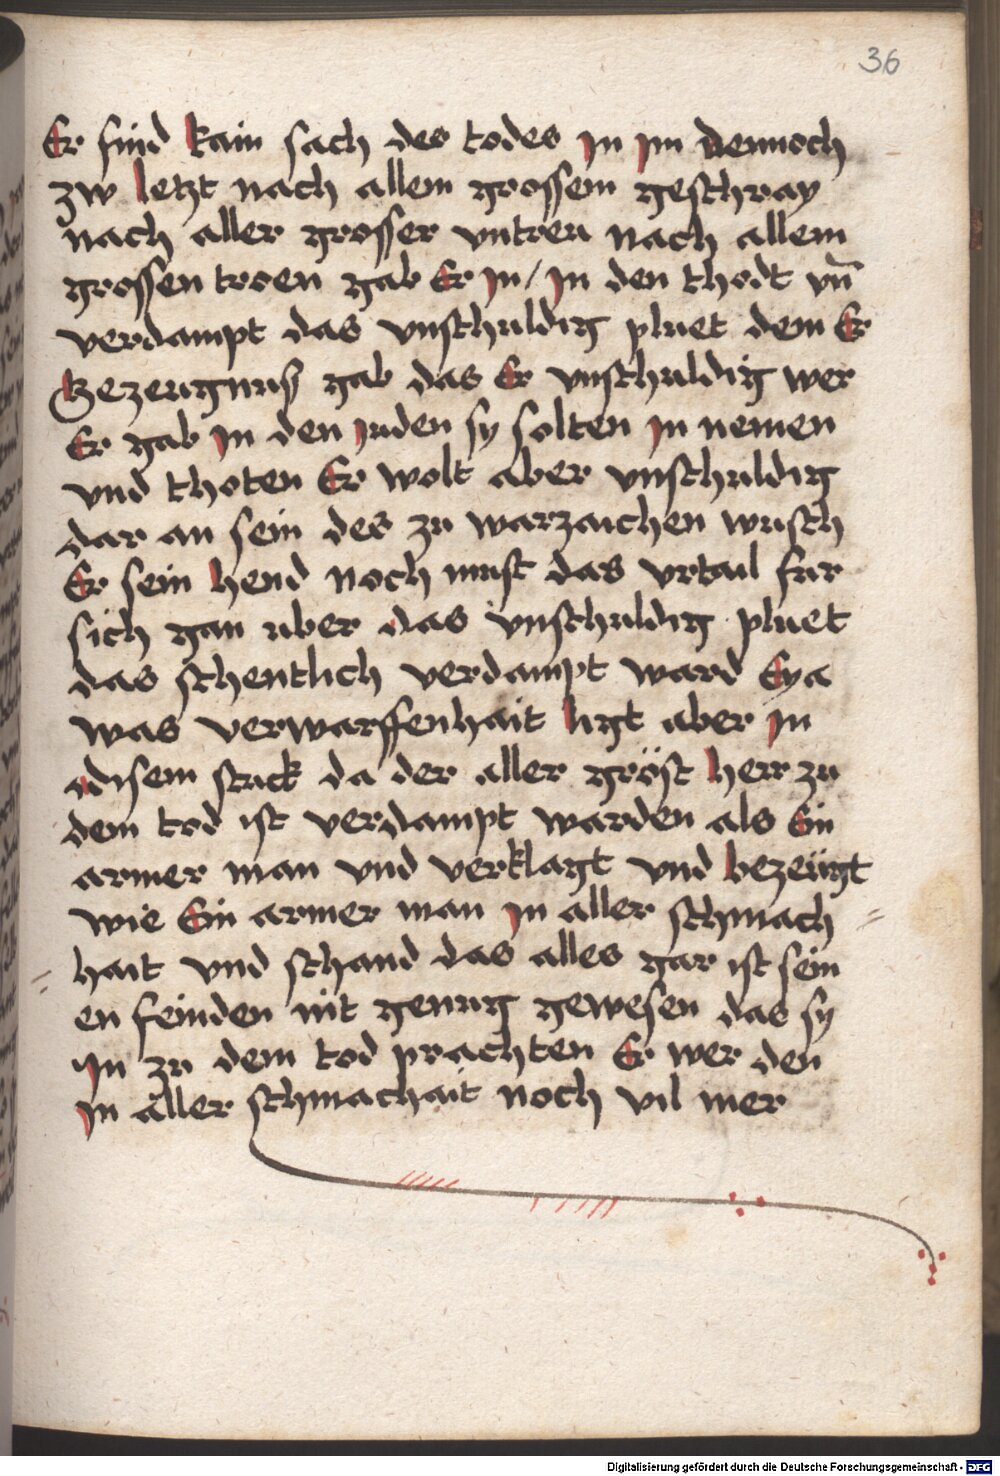 36
Er find kain sach des todes jn jm dennoch
zw letzt nach allem grossem geschray
nach aller grosser vntreu nach allem
grossen troen gab Er jn / jn den thodt vn̄
verdampt das vnschuldig pluet dem Er
Gezeugnuß gab das Er vnschuldig wer
Er gab jn den juden sy solten jn nemen
vnd thoten Er wolt aber vnschuldig
dar an sein des zu warzaichen wusch
Er sein hend noch must das vrtail fur
sich gan uber das vnschuldig pluet
das schentlich verdampt ward Eya
was verwarffenhait ligt aber jn
disem stuck da der aller gröst herr zu
dem tod ist verdampt warden als Ein
armer man vnd verklagt vnd bezeügt
wie Ein armer man jn aller schmach
hait vnd schand das alles gar ist sein
en feinden nit genug gewesen das sy
jn zu dem tod prachten Er wer den
jn aller schmachait noch vil mer
Digitalisierung gefördert durch die Deutsche Forschungsgemeinschaft - DFG